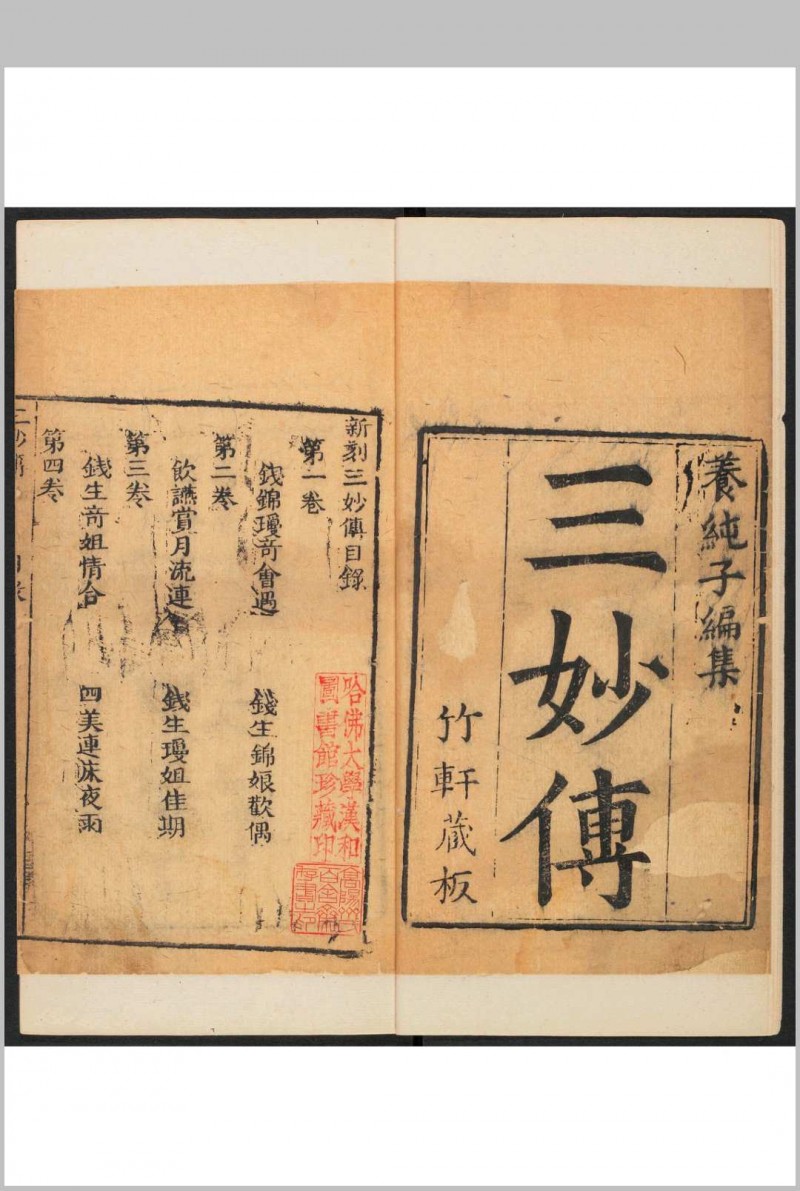 養純子編集
三妙傳
竹軒藏板
新刻三妙傳目錄
第一卷
錢錦瓊奇會遇
錢生錦娘歡偶
第二卷
飲讌賞月流連
錢生瓊姐佳期
第三卷
錢生奇姐情合
四美連床夜雨
第四卷
三妙傳
目錄
哈佛大學漢和
圖書館珍藏印